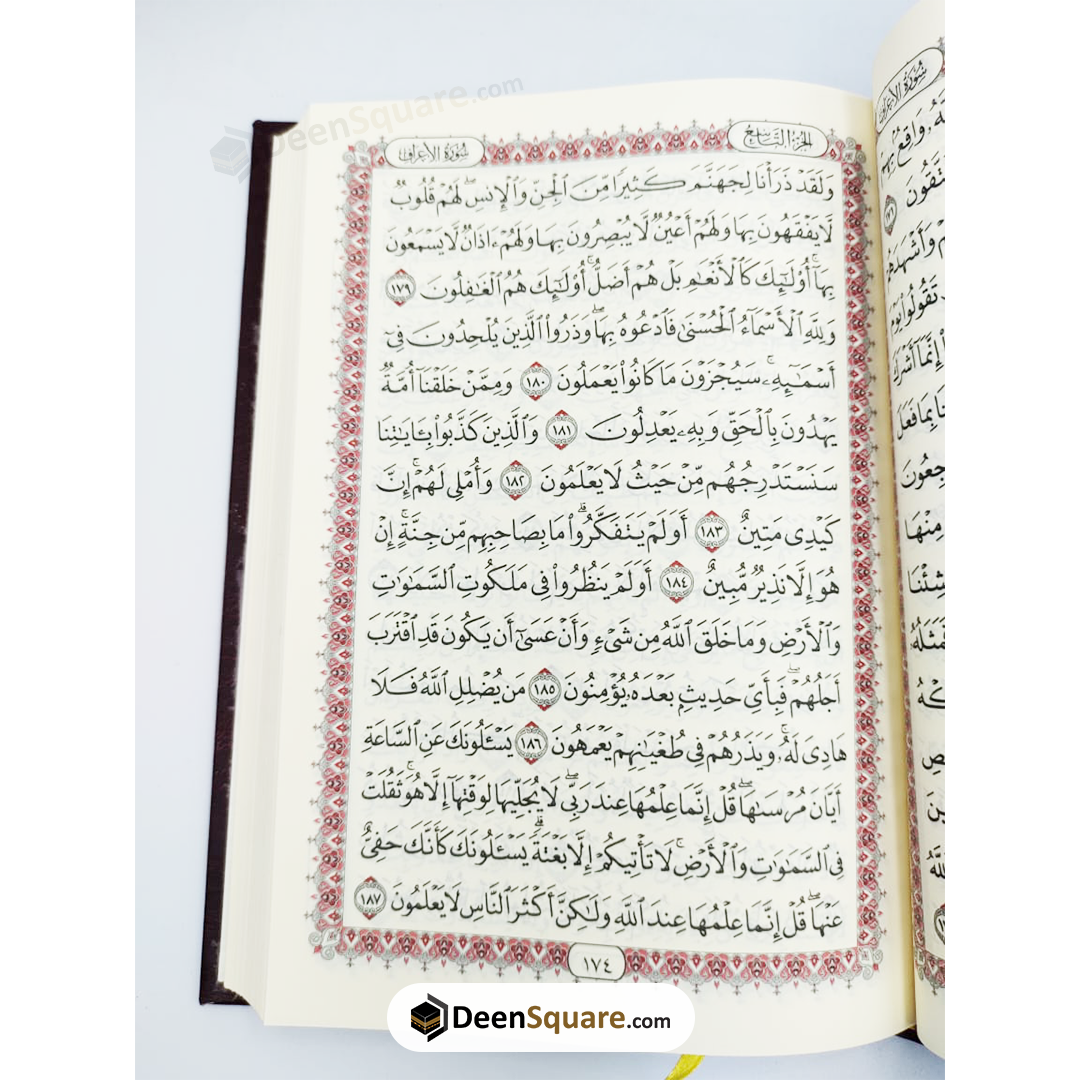 DeenSquare.com
الجزء التاسع
سورة الأعراف
وَلَقَدْ ذَرَأْنَا لِجَهَنَّمَ كَثِيرًا مِّنَ الْجِنِّ وَالْإِنسِ ۖ لَهُمْ قُلُوبٌ
لَّا يَفْقَهُونَ بِهَا وَلَهُمْ أَعْيُنٌ لَّا يُبْصِرُونَ بِهَا وَلَهُمْ ءَاذَانٌ لَّا يَسْمَعُونَ
بِهَا ۚ أُوْلَٰٓئِكَ كَالْأَنْعَٰمِ بَلْ هُمْ أَضَلُّ ۚ أُوْلَٰٓئِكَ هُمُ الْغَٰفِلُونَ ١٧٩
وَلِلَّهِ الْأَسْمَآءُ الْحُسْنَىٰ فَادْعُوهُ بِهَا ۖ وَذَرُوا۟ الَّذِينَ يُلْحِدُونَ فِىٓ
أَسْمَٰٓئِهِۦ ۚ سَيُجْزَوْنَ مَا كَانُوا۟ يَعْمَلُونَ ١٨٠ وَمِمَّنْ خَلَقْنَآ أُمَّةٌ
يَهْدُونَ بِالْحَقِّ وَبِهِۦ يَعْدِلُونَ ١٨١ وَالَّذِينَ كَذَّبُوا۟ بِـَٔايَٰتِنَا
سَنَسْتَدْرِجُهُم مِّنْ حَيْثُ لَا يَعْلَمُونَ ١٨٢ وَأُمْلِى لَهُمْ ۚ إِنَّ
كَيْدِى مَتِينٌ ١٨٣ أَوَلَمْ يَتَفَكَّرُوا۟ ۗ مَا بِصَاحِبِهِم مِّن جِنَّةٍ ۚ إِنْ
هُوَ إِلَّا نَذِيرٌ مُّبِينٌ ١٨٤ أَوَلَمْ يَنظُرُوا۟ فِى مَلَكُوتِ السَّمَٰوَٰتِ
وَالْأَرْضِ وَمَا خَلَقَ اللَّهُ مِن شَىْءٍ وَأَنْ عَسَىٰٓ أَن يَكُونَ قَدِ اقْتَرَبَ
أَجَلُهُمْ ۖ فَبِأَىِّ حَدِيثٍۭ بَعْدَهُۥ يُؤْمِنُونَ ١٨٥ مَن يُضْلِلِ اللَّهُ فَلَا
هَادِىَ لَهُۥ ۚ وَيَذَرُهُمْ فِى طُغْيَٰنِهِمْ يَعْمَهُونَ ١٨٦ يَسْـَٔلُونَكَ عَنِ السَّاعَةِ
أَيَّانَ مُرْسَىٰهَا ۖ قُلْ إِنَّمَا عِلْمُهَا عِندَ رَبِّى ۖ لَا يُجَلِّيهَا لِوَقْتِهَآ إِلَّا هُوَ ۚ ثَقُلَتْ
فِى السَّمَٰوَٰتِ وَالْأَرْضِ ۚ لَا تَأْتِيكُمْ إِلَّا بَغْتَةً ۗ يَسْـَٔلُونَكَ كَأَنَّكَ حَفِىٌّ
عَنْهَا ۖ قُلْ إِنَّمَا عِلْمُهَا عِندَ اللَّهِ وَلَٰكِنَّ أَكْثَرَ النَّاسِ لَا يَعْلَمُونَ ١٨٧
١٧٤
سورة الأعراف
DeenSquare.com